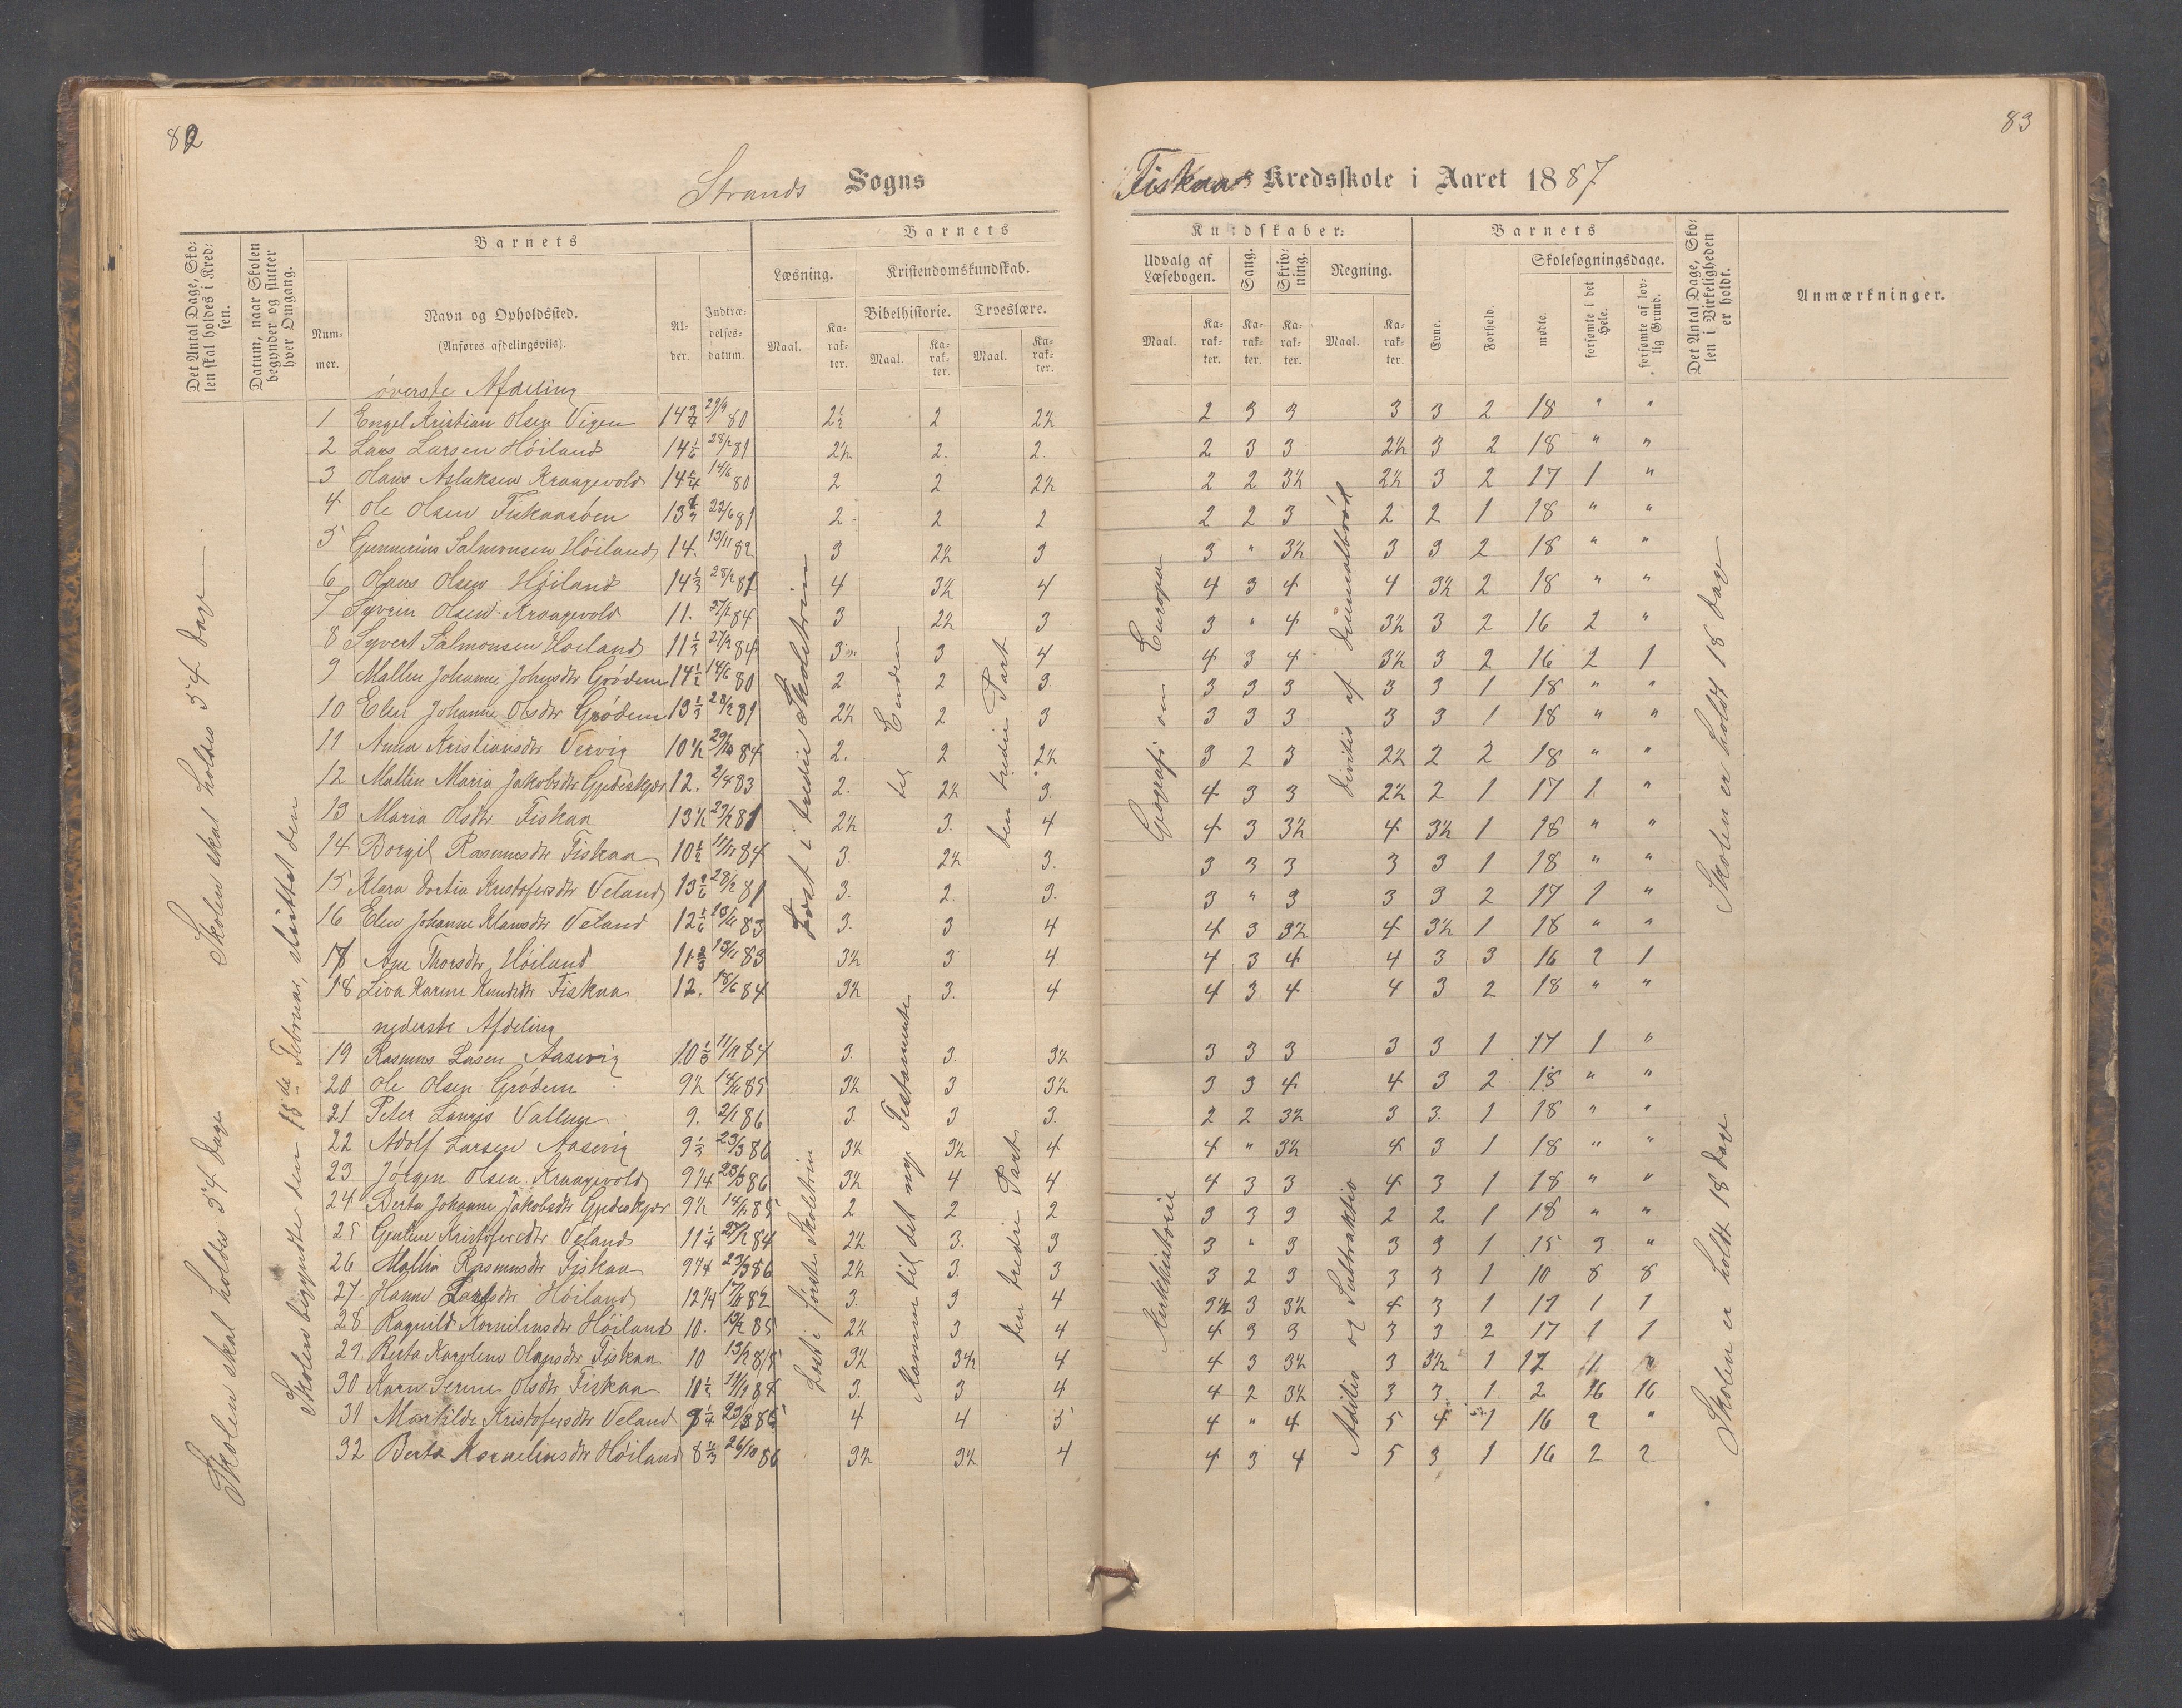 82
83
Strands Sogns
Fiskaa Kredsskole i Aaret 1887
Det Antal Dage, Skolen skal holdes i Kredsen.
Datum, naar Skolen begynder og slutter hver Omgang.
Barnets
Nummer.
Navn og Opholdssted.
(Anføres afdelingsviis).
Alder.
Indtrædelsesdatum.
Barnets
Læsning.
Kristendomskundskab.
Bibelhistorie.
Troeslære.
Maal.
Karakter.
Maal.
Karakter.
Maal.
Karakter.
Kundskaber:
Udvalg af Læsebogen.
Sang.
Skrivning.
Regning.
Maal.
Karakter.
Karakter.
Karakter.
Maal.
Karakter.
Barnets
Evne.
Forhold.
Skolesøgningsdage.
mødte.
forsømte i det Hele.
forsømte af lovlig Grund.
Det Antal Dage, Skolen i Virkeligheden er holdt.
Anmærkninger.
Skolen skal holdes 54 Dage
Skolen skal holdes 54 Dage
Skolen begyndte den 18de Februar, sluttet den
Læst i tredie Skoletrin
til Enden
den tredie Part
Geografi om Europa
Divitio af Desimalbrøk
Skolen er holdt 18 Dage
Læst i første Skoletrin
Kommen til det nye Testamente
den tredie Part
Kirkehistorie
Aditio og Subtraktio
Skolen er holdt 18 Dage
øverste Afdeling
1 Engel Kristian Olsen Vigen 14 3/4 29/9 80 2½ 2 2½ 2 3 3 3 3 2 18 " "
2 Lars Larsen Høiland 14 1/6 28/2 81 2½ 2. 2. 2 3 3 2½ 3 2 18 " "
3 Hans Aslaksen Kraagevold 14 14/6 80 2 2 2½ 2 2 3½ 2½ 3 2 17 1 "
4 Ole Olsen Fiskaaøen 13 22/6 81 2 2 2 2 2 3 2 2 1 18 " "
5 Gunnerius Salmonsen Høiland 14. 13/11 82 3 2½ 3 3 " 3½ 3 3 2 18 " "
6 Hans Olsen Høiland 14 1/3 28/2 81 4 3½ 4 4 3 4 4 3½ 2 18 " "
7 Syvrin Olsen Kraagevold 11. 27/2 84 3 2½ 3 3 " 4 3½ 3 2 16 2 "
8 Syvert Salmonsen Høiland 11 1/3 27/2 84 3 3 4 4 3 4 3½ 3 2 16 2 1
9 Mallen Johanne Johnsdtr Grødem 14½ 14/6 80 2 2 3. 3 3 3 3 3 1 18 " "
10 Elen Johanne Olsdtr Grødem 13 1/3 28/2 81 2½ 2 3 3 3 3 3 3 1 18 " "
11 Anna Kristiansdtr Vervig 10½ 29/10 84 2. 2 2½ 3 2 3 2½ 2 2 18 " "
12 Mallin Maria Jakobsdtr Gjedeskjær 12. 2/4 83 2. 2½ 3. 4 3 3 2½ 2 1 17 1 "
13 Maria Olsdtr Fiskaa 13½ 29/2 81 2½ 3. 4 4 3 3½ 4 3½ 1 18 " "
14 Borgil Rasmusdtr Fiskaa 10½ 11/11 84 3. 2½ 3. 3 3 3 3 3 1 18 " "
15 Klara Dortia Kristofersdtr Veland 13 28/2 81 3. 2. 3. 3 " 3 3 3 2 17 1 "
16 Elen Johanne Klausdtr Veland 12 1/6 13/11 83 3. 3 4 4 3 3½ 4 3½ 1 18 " "
17 Ane Thorsdtr Høiland 11 13/11 83 3½ 3 4 4 3 4 4 3 3 16 2 1
18 Liva Karine Knudsdtr Fiskaa 12. 18/6 84 3½ 3. 4 4 3 4 4 3 2 18 " "
nederste Afdeling
19 Rasmus Lasen Aasevig 10 1/3 11/11 84 3. 3. 3½ 3 3 3 3 3 1 17 1 "
20 Ole Olsen Grødem 9½ 14/11 85 3½ 3 3½ 3 3 4 4 3 2 18 " "
21 Peter Lauris Vallem 9. 2/1 86 3. 3 3. 2 2 3½ 3 3. 1 18 " "
22 Adolf Larsen Aasevig 9 1/3 23/3 86 3½ 3½ 4 4 " 3½ 4 3 1 18 " "
23 Jørgen Olsen Kraagevold 9¼ 23/3 86 3½ 4 4 4 3 3 4 3 1 18 " "
24 Berta Johanne Jakobsdtr Gjedeskjær 9½ 14/11 85 2 2 2 3 3 3 2 2 1 18 " "
25 Gentine Kristofersdtr Veland 11¼ 27/2 84 2½ 3. 3 3 " 3 3 3 1 15 3 "
26 Mallin Rasmusdtr Fiskaa 9¼ 23/3 86 2½ 3. 3 3 2 3 3 3 1 10 8 8
27 Hanne Larsdtr Høiland 12¼ 17/11 82 3. 3 4 3½ 3 3½ 4 3 1 17 1 1
28 Ragnild Kornelinsdtr Høiland 10. 13/2 85 2½ 3 4 4 3 3 3 3 2 17 1 1
29. Berta Karoline Olausdtr Fiskaa 10 13/2 85 3½ 3½ 4 4 3 3½ 3 3½ 1 17 1 "
30 Karn Serine Olsdtr Fiskaa 10½ 11/11 84 3. 3 4 4 2 3½ 3 3 1 2 16 16
31 Martilde Kristofersdtr Veland 9¼ 23/3 86 4 4 5 4 " 4 5 4 1 16 2 "
32 Berta Kornelinsdtr Høiland 8 26/10 86 3½ 3½ 4 4 3 4 5 3 1 16 2 2